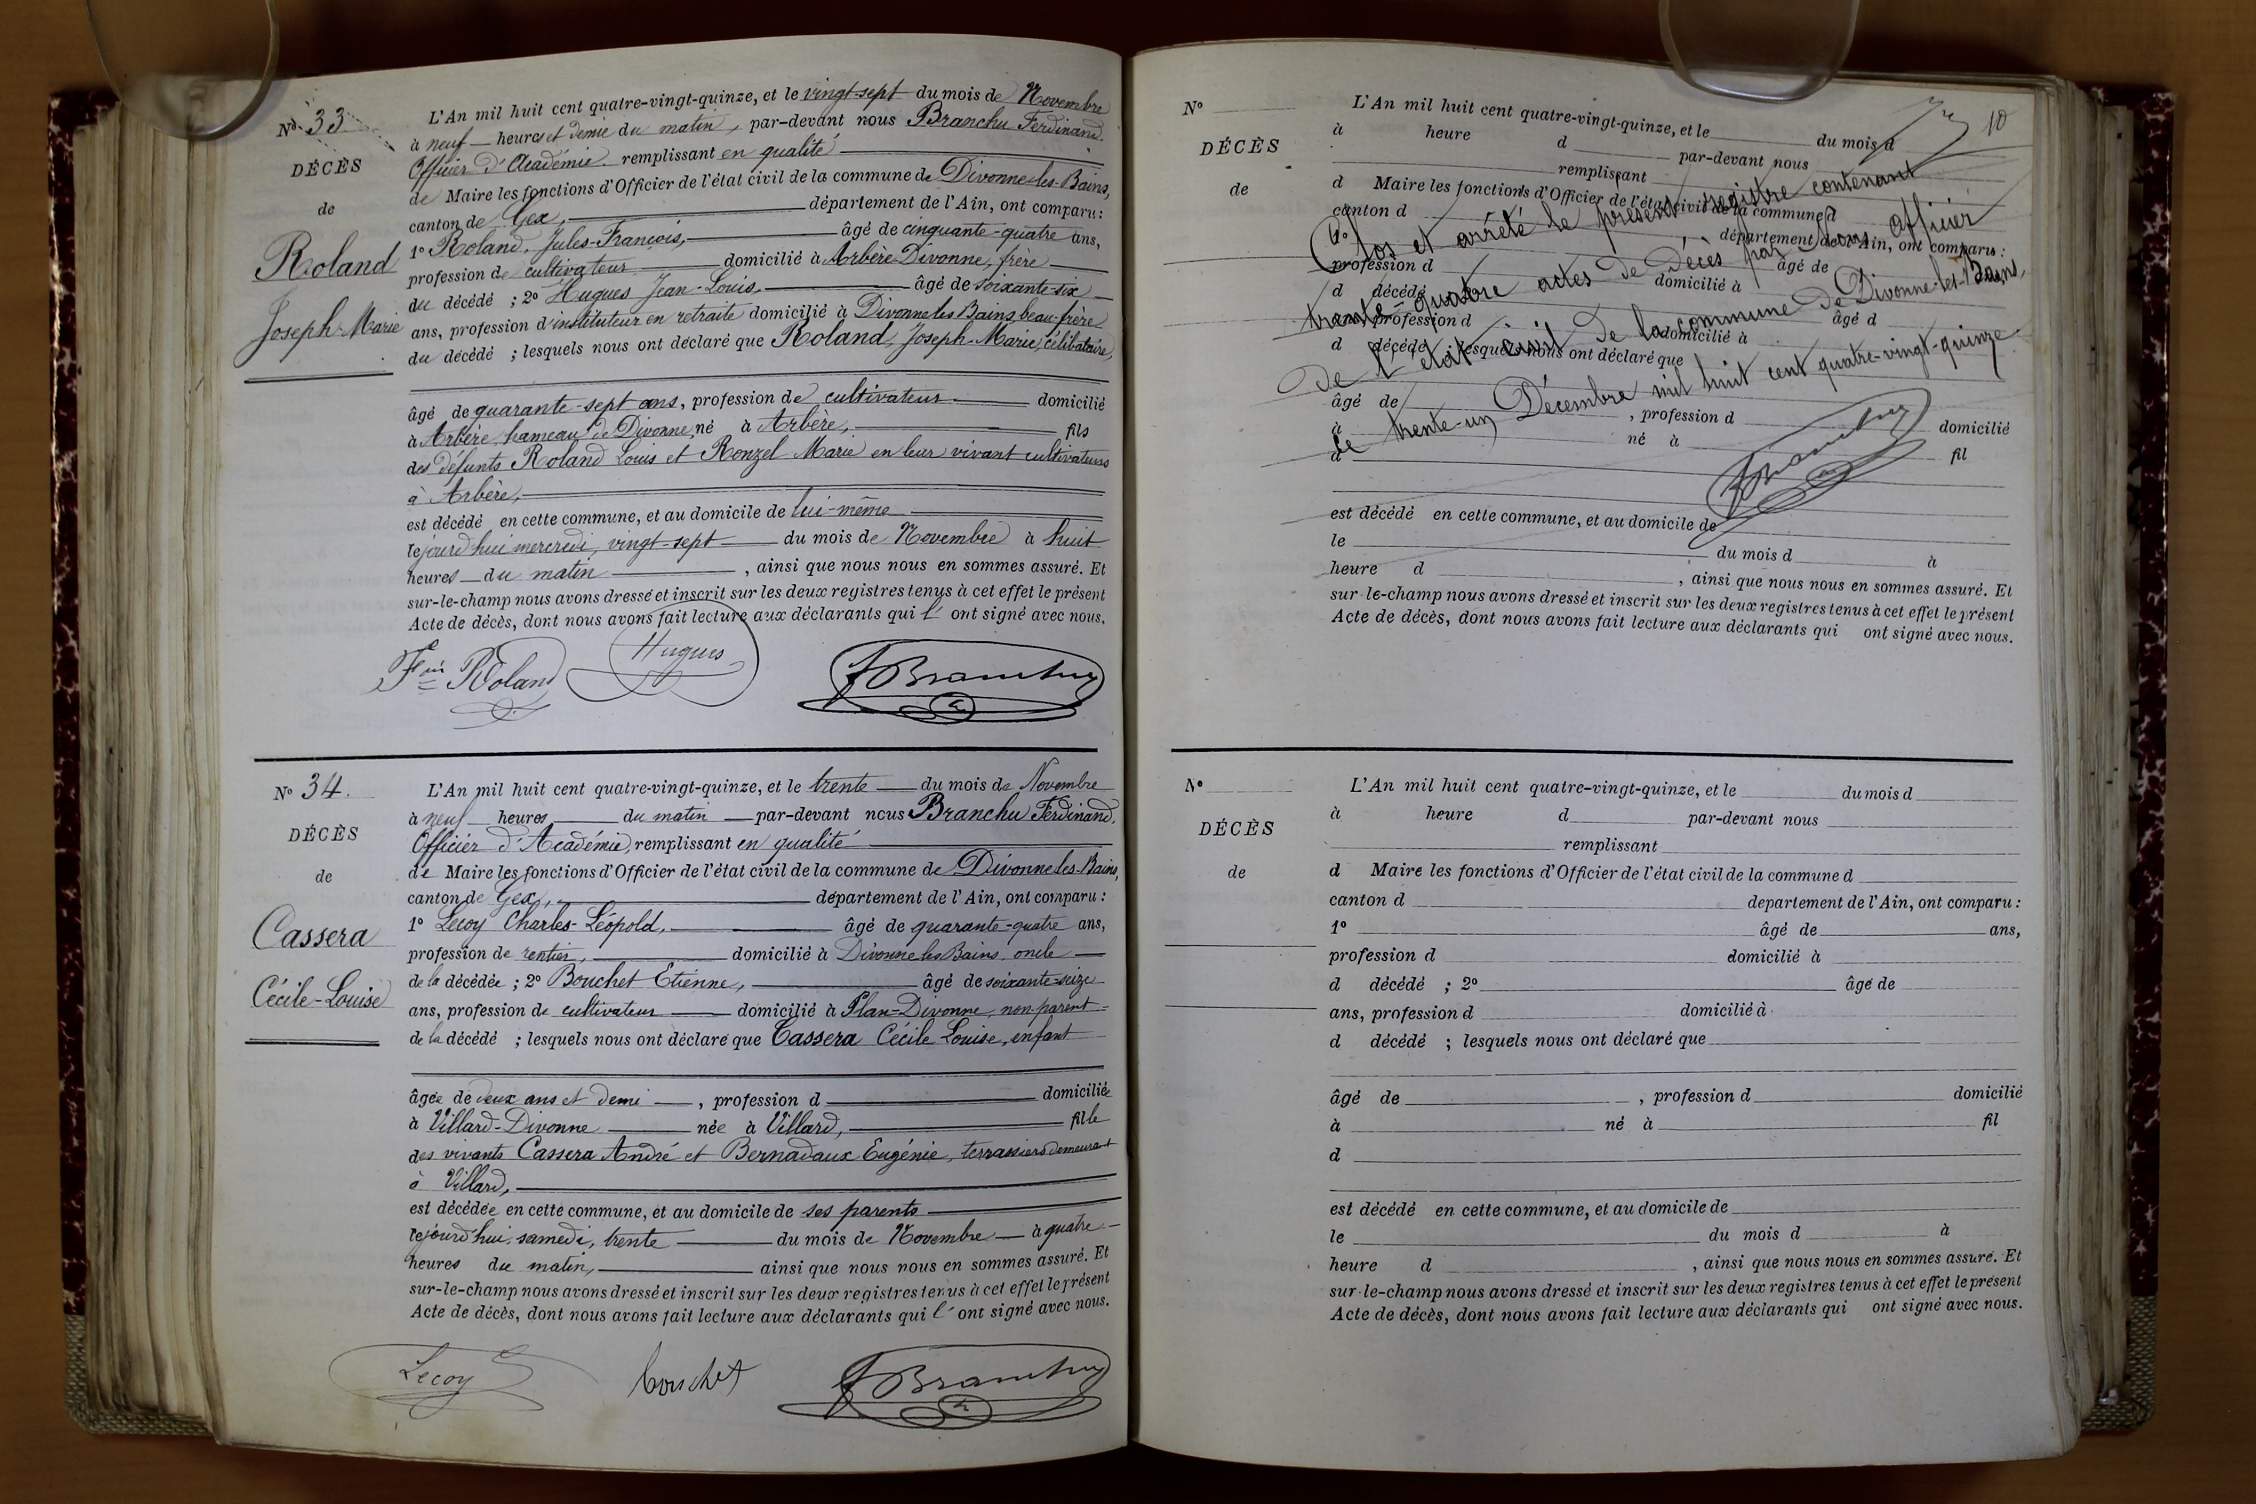 N° 33
DÉCÈS
de
Roland
Joseph-Marie
L'An mil huit cent quatre-vingt-quinze, et le vingt-sept du mois de Novembre
à neuf heures et demie du matin, par-devant nous Branchu Ferdinand.
Officier d'Académie remplissant en qualité
de Maire les fonctions d'Officier de l'état civil de la commune de Divonne-les-Bains,
canton de Gex, département de l'Ain, ont comparu :
1° Roland, Jules-François, âgé de cinquante-quatre ans,
profession de cultivateur domicilié à Arbère-Divonne, frère
du décédé ; 2° Hugues Jean-Louis, âgé de soixante-six
ans, profession d'instituteur en retraite domicilié à Divonne les Bains, beau-frère
du décédé ; lesquels nous ont déclaré que Roland, Joseph-Marie, célibataire,
âgé de quarante-sept ans, profession de cultivateur domicilié
à Arbère, hameau de Divonne, né à Arbère, fils
des défunts Roland Louis et Ronzel Marie en leur vivant cultivateurs
à Arbère,
est décédé en cette commune, et au domicile de lui-même
lejourd'hui mercredi, vingt-sept du mois de Novembre à huit
heures du matin, ainsi que nous nous en sommes assuré. Et
sur-le-champ nous avons dressé et inscrit sur les deux registres tenus à cet effet le présent
Acte de décès, dont nous avons fait lecture aux déclarants qui l'ont signé avec nous.
Fois Roland Hugues FBranchu
N° 34.
DÉCÈS
de
Cassera
Cécile-Louise
L'An mil huit cent quatre-vingt-quinze, et le trente du mois de Novembre
à neuf heures du matin par-devant nous Branchu Ferdinand.
Officier d'Académie, remplissant en qualité
de Maire les fonctions d'Officier de l'état civil de la commune de Divonne les Bains,
canton de Gex, département de l'Ain, ont comparu :
1° Lecoy Charles-Léopold, âgé de quarante-quatre ans,
profession de rentier, domicilié à Divonne les Bains, oncle
de la décédée ; 2° Bouchet Etienne, âgé de soixante-seize
ans, profession de cultivateur domicilié à Plan-Divonne, non parent
de la décédé ; lesquels nous ont déclaré que Cassera Cécile Louise, enfant
âgée de deux ans et demi, profession d domiciliée
à Villard-Divonne née à Villard, fille
des vivants Cassera André et Bernadaux Eugénie, terrassiers demeurant
à Villard,
est décédée en cette commune, et au domicile de ses parents
lejourd'hui, samedi, trente du mois de Novembre à quatre
heures du matin, ainsi que nous nous en sommes assuré. Et
sur-le-champ nous avons dressé et inscrit sur les deux registres tenus à cet effet le présent
Acte de décès, dont nous avons fait lecture aux déclarants qui l'ont signé avec nous.
Lecoy bouchet FBranchu
10
N°
DÉCÈS
de
L'An mil huit cent quatre-vingt-quinze, et le du mois d
à heure d par-devant nous
remplissant
d Maire les fonctions d'Officier de l'état civil de la commune d
canton d département de l'Ain, ont comparu :
1° âgé de
profession d domicilié à
d décédé âgé d
ans, profession d domicilié à
d décédé ; lesquels nous ont déclaré que
âgé de , profession d domicilié
à né à fil
d
Clos et arrêté le présent registre contenant
trente-quatre actes de décès par Nous officier
de l'état civil de la commune de Divonne-les-Bains,
le trente-un Décembre mil huit cent quatre-vingt-quinze
FBranchu
est décédé en cette commune, et au domicile de
le du mois d à
heure d , ainsi que nous nous en sommes assuré. Et
sur-le-champ nous avons dressé et inscrit sur les deux registres tenus à cet effet le présent
Acte de décès, dont nous avons fait lecture aux déclarants qui ont signé avec nous.
N°
DÉCÈS
de
L'An mil huit cent quatre-vingt-quinze, et le du mois d
à heure d par-devant nous
remplissant
d Maire les fonctions d'Officier de l'état civil de la commune d
canton d département de l'Ain, ont comparu :
1° âgé de ans,
profession d domicilié à
d décédé ; 2° âgé de
ans, profession d domicilié à
d décédé ; lesquels nous ont déclaré que
âgé de , profession d domicilié
à né à fil
d
est décédé en cette commune, et au domicile de
le du mois d à
heure d , ainsi que nous nous en sommes assuré. Et
sur-le-champ nous avons dressé et inscrit sur les deux registres tenus à cet effet le présent
Acte de décès, dont nous avons fait lecture aux déclarants qui ont signé avec nous.